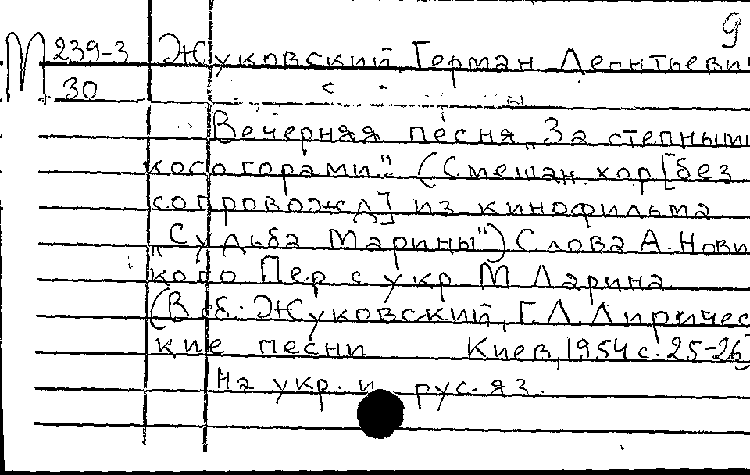 9
М 239-3 Жуковский, Герман Леонтьеви
30
Вечерняя песня „За степными
косогорами" (Смешан. хор [без
сопровожд] из кинофильма
„Судьба Марины") Слова А. Нови
кого Пер с укр М Ларина
(В сб.: Жуковский, Г. Л. Лиричес
кие песни Киев, 1954 с. 25-26)
На укр. и рус. яз.